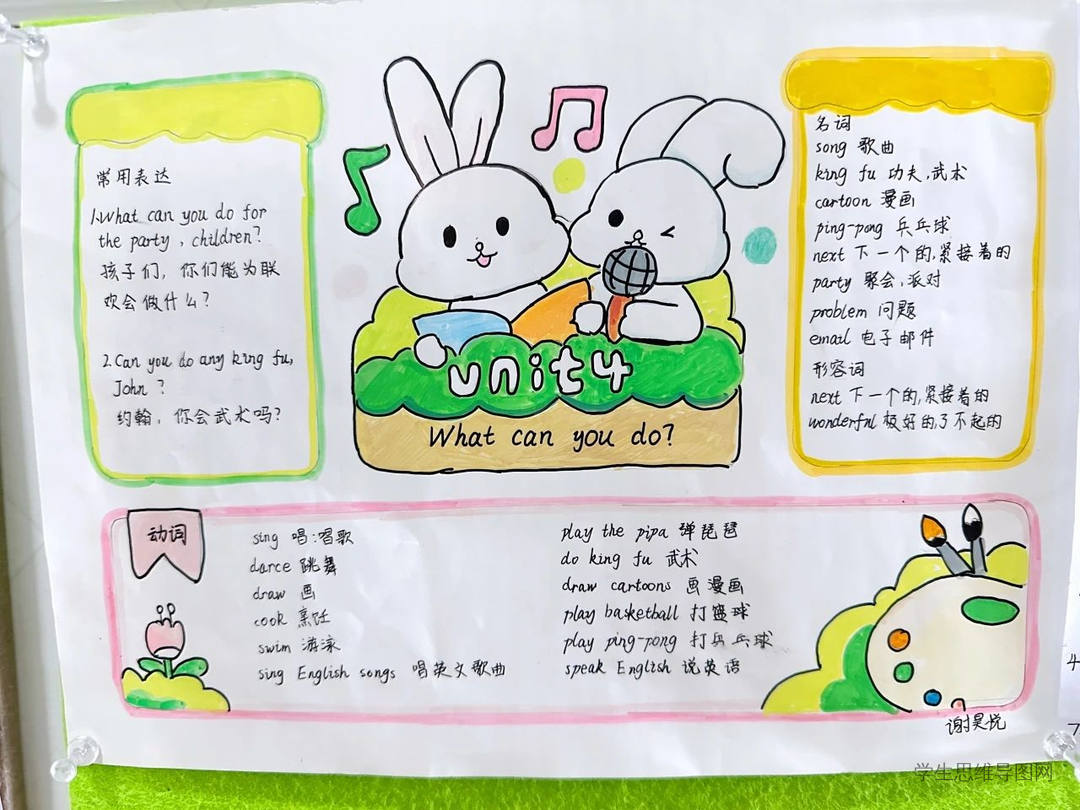 常用表达
1.What can you do for
the party , children?
孩子们, 你们能为联
欢会做什么?
2.Can you do any king fu,
John ?
约翰, 你会武术吗?
unit4
What can you do?
名词
song 歌曲
king fu 功夫,武术
cartoon 漫画
ping-pong 乒乓球
next 下一个的,紧接着的
party 聚会,派对
problem 问题
email 电子邮件
形容词
next 下一个的,紧接着的
wonderful 极好的,了不起的
动词
sing 唱:唱歌
dance 跳舞
draw 画
cook 烹饪
swim 游泳
sing English songs 唱英文歌曲
play the pipa 弹琵琶
do king fu 武术
draw cartoons 画漫画
play basketball 打篮球
play ping-pong 打乒乓球
speak English 说英语
谢昊悦
学生思维导图网
4
7